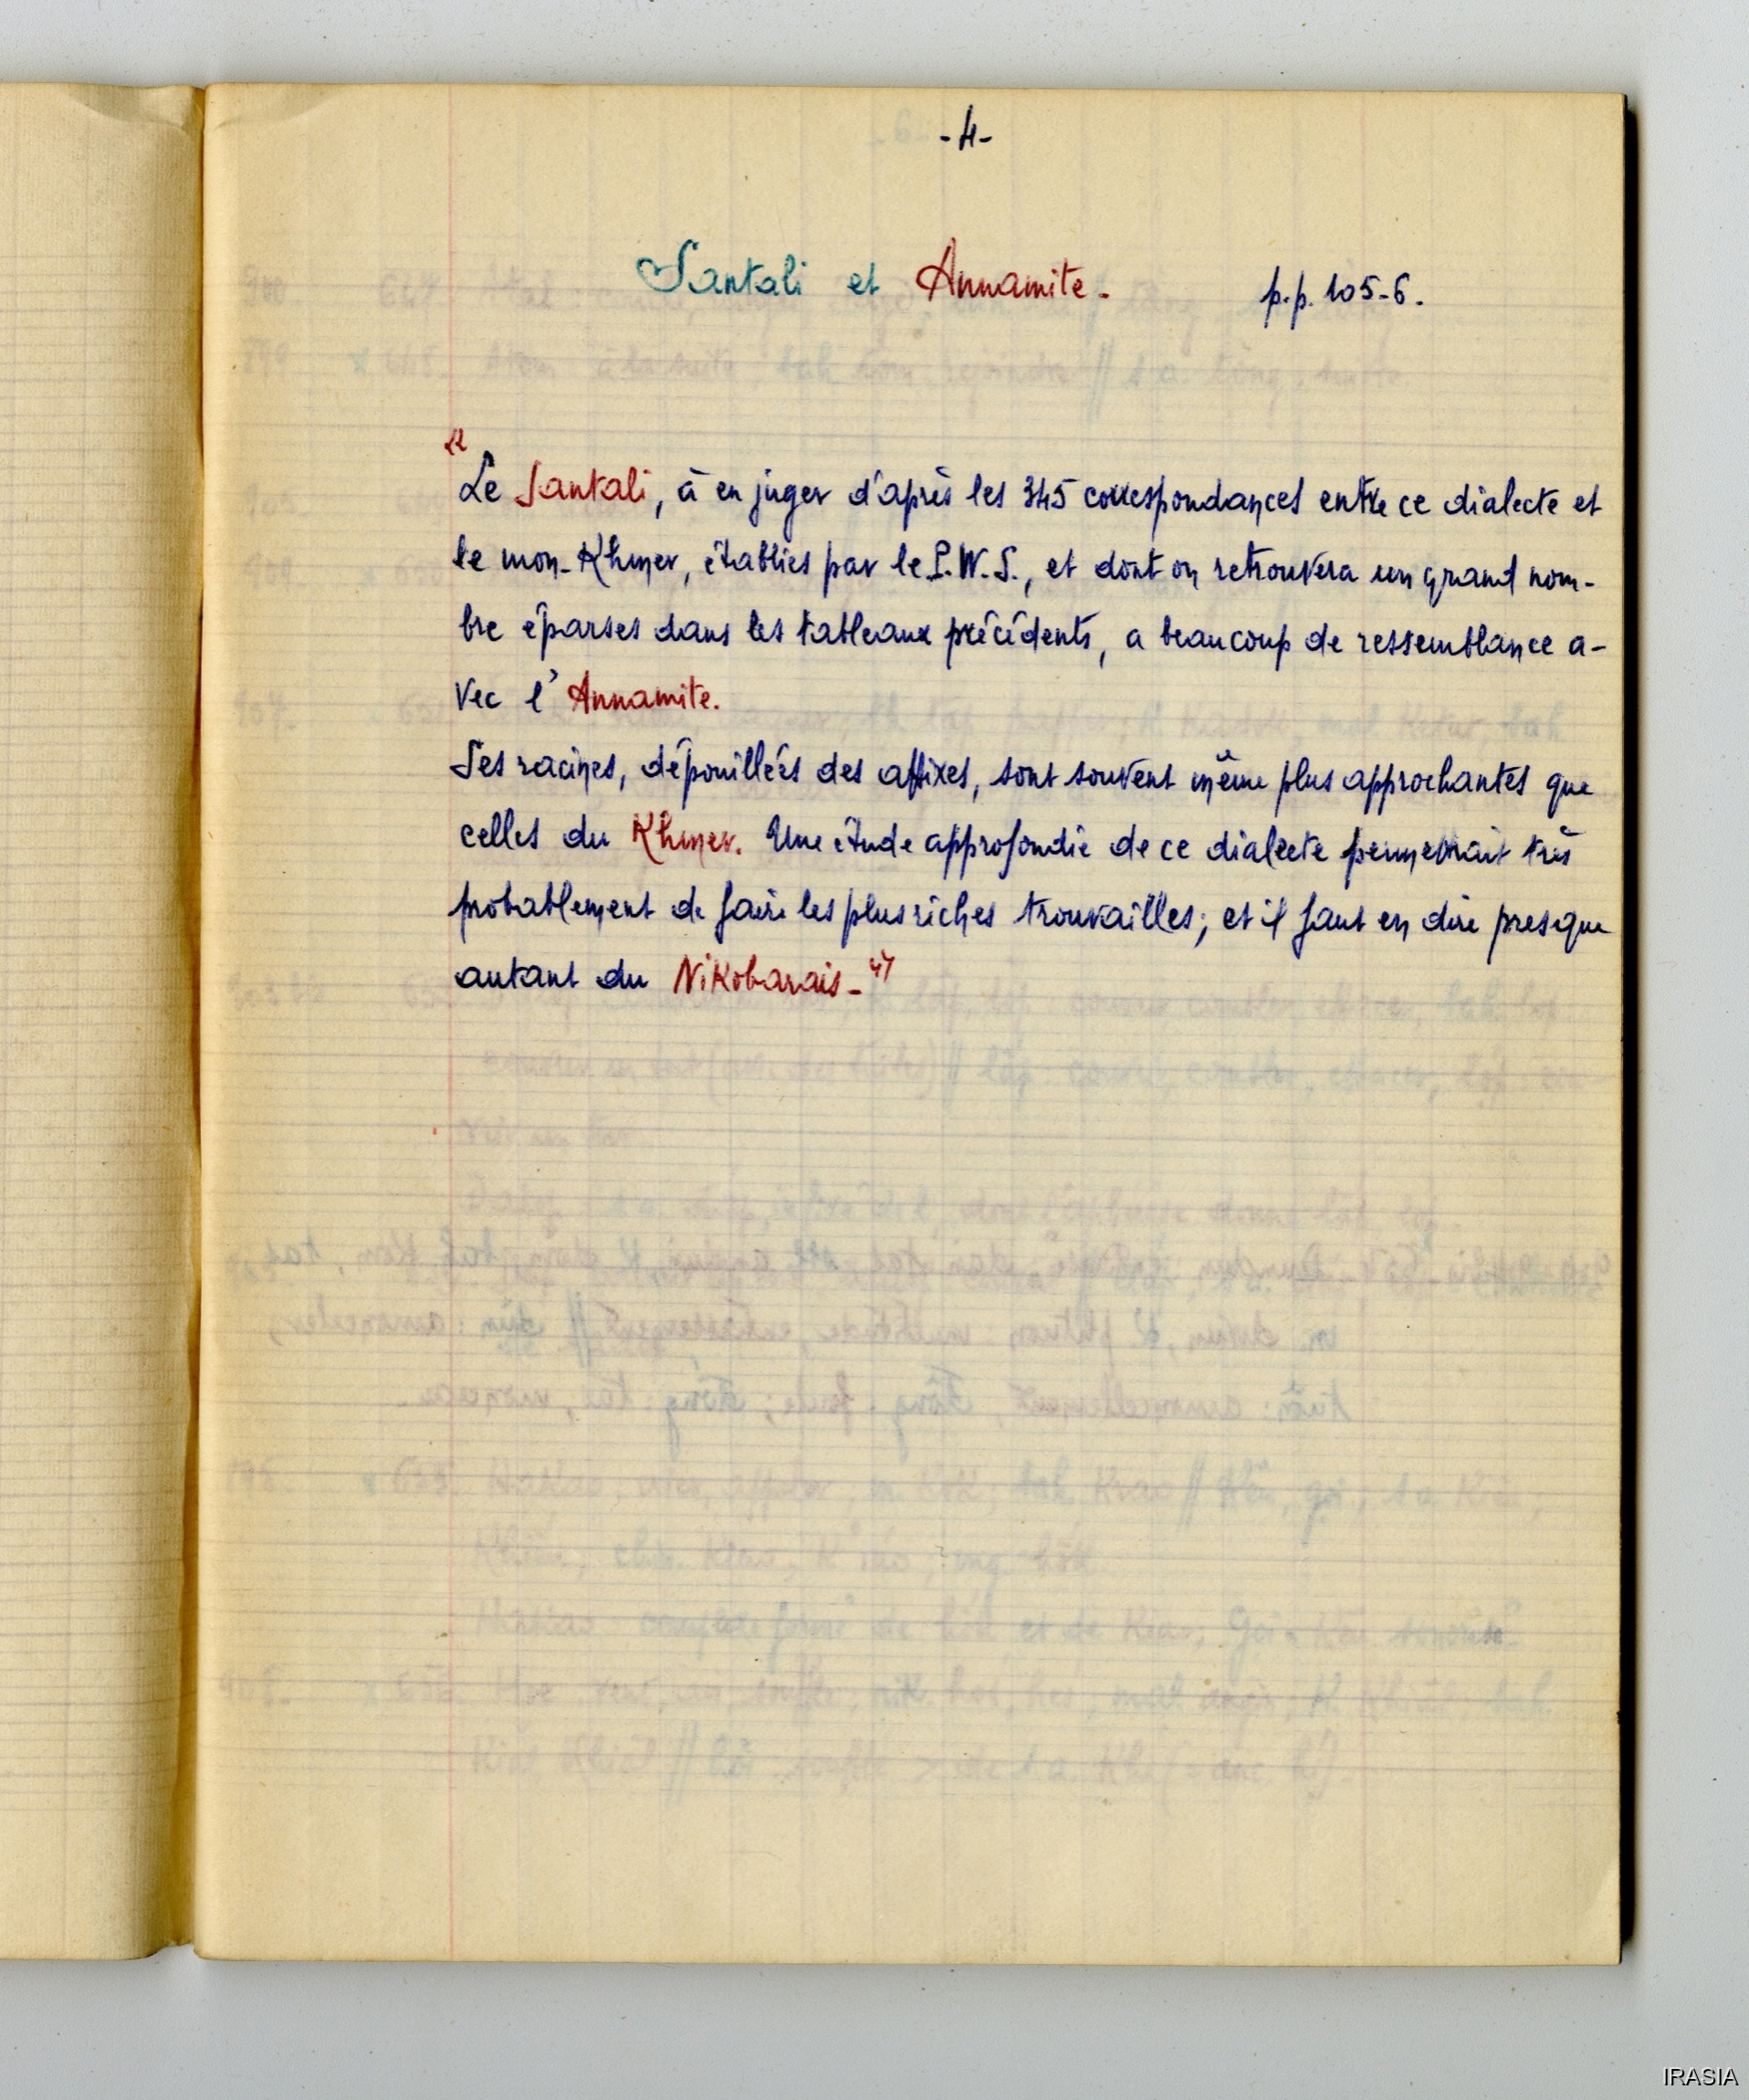 -4-
Santali et Annamite. p.p. 105-6.
"Le Santali, à en juger d'après les 345 correspondances entre ce dialecte et
le mon-Khmer, établies par le P.W.S., et dont on retrouvera un grand nom-
bre éparses dans les tableaux précédents, a beaucoup de ressemblance a-
vec l'Annamite.
Ses racines, dépouillées des affixes, sont souvent même plus approchantes que
celles du Khmer. Une étude approfondie de ce dialecte permettrait très
probablement de faire les plus riches trouvailles; et il faut en dire presque
autant du Nikobarais-"
IRASIA